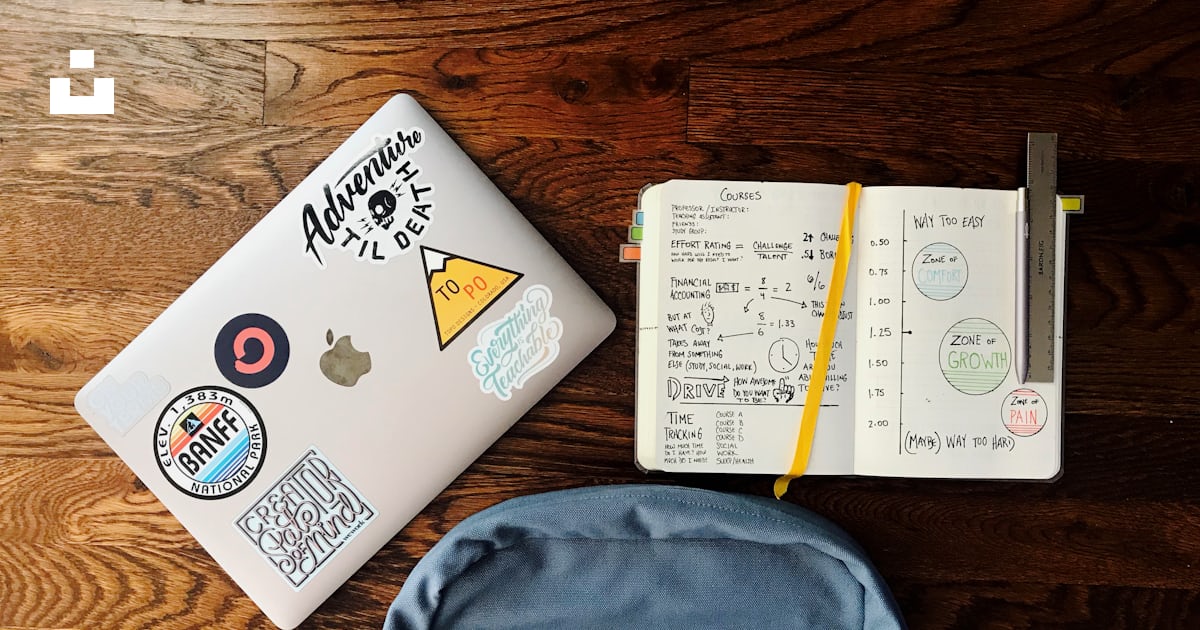 Adventure
TIL DEATH
TO PO
TOPO DESIGNS · COLORADO, USA
Everything
is
Teachable
ELEV. 1,383m
&
BANFF
NATIONAL PARK
CREATOR
of
Mind
wework
COURSES
PROFESSOR / INSTRUCTOR:
TEACHING ASSISTANT:
FRIENDS:
STUDY GROUP:
EFFORT RATING = CHALLENGE
TALENT
HOW HARD WILL I NEED TO
WORK FOR THE RESULT I WANT?
FINANCIAL
ACCOUNTING
= 8
4
= 2
6/6
BUT AT
WHAT COST?
8
6
= 1.33
TAKES AWAY
FROM SOMETHING
ELSE (STUDY, SOCIAL, WORK)
DRIVE
HOW AWESOME
DO YOU WANT
TO BE?
TIME
TRACKING
HOW MUCH TIME
DO I HAVE? HOW
MUCH DO I NEED?
COURSE A
COURSE B
COURSE C
COURSE D
SOCIAL
WORK
SLEEP/HEALTH
WAY TOO EASY
0.50
ZONE OF
COMFORT
0.75
1.00
1.25
ZONE OF
GROWTH
1.50
1.75
ZONE OF
PAIN
2.00
(MAYBE) WAY TOO HARD
BARON FIG